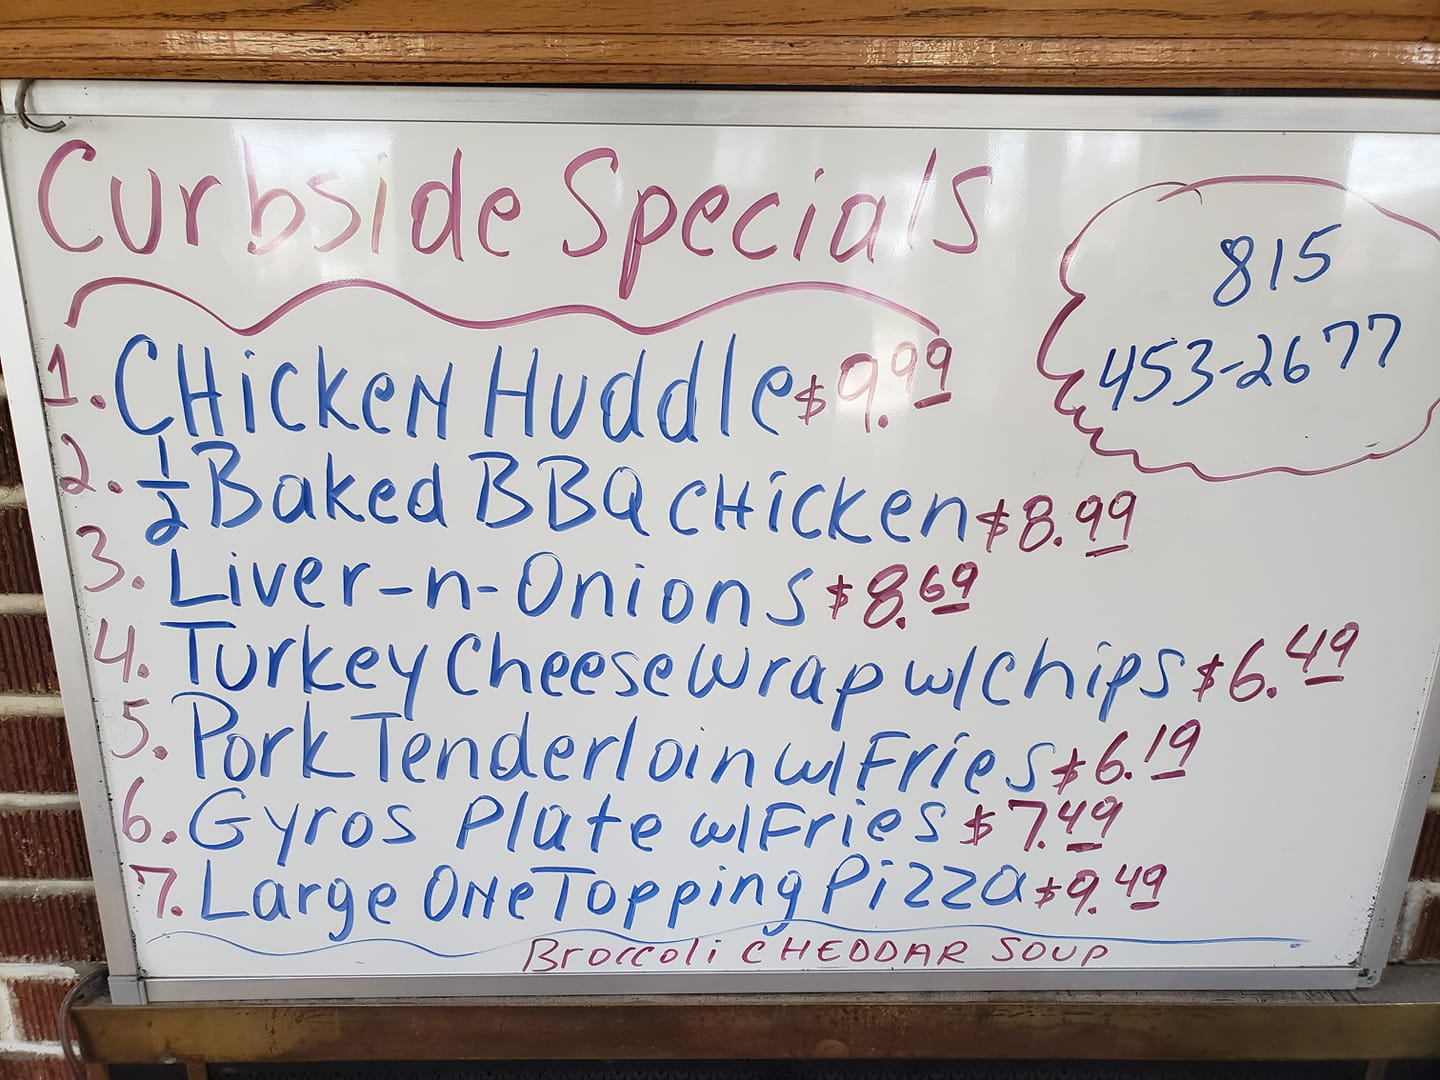 Curbside Specials
815
453-2677
1. CHicKeN Huddle $9.99
2. 1/2 Baked BBQ cHicken $8.99
3. Liver-n-Onions $8.69
4. Turkey Cheese Wrap w/chips $6.49
5. Pork Tenderloin w/Fries $6.19
6. Gyros Plate w/Fries $7.49
7. Large ONe Topping Pizza $9.49
Broccoli CHEDDAR SOUP